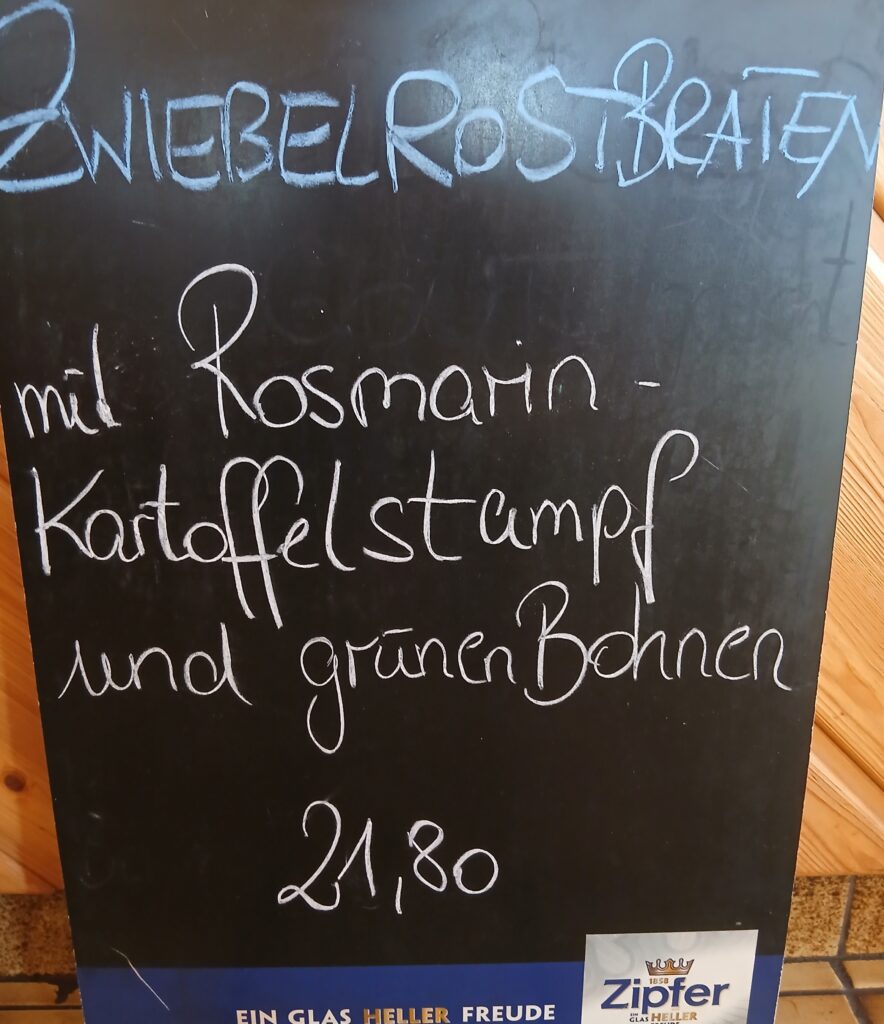 ZWIEBELROSTBRATEN
mit Rosmarin-
Kartoffelstampf
und grünen Bohnen
21,80
EIN GLAS HELLER FREUDE
1858
Zipfer
EIN
GLAS HELLER
FREUDE